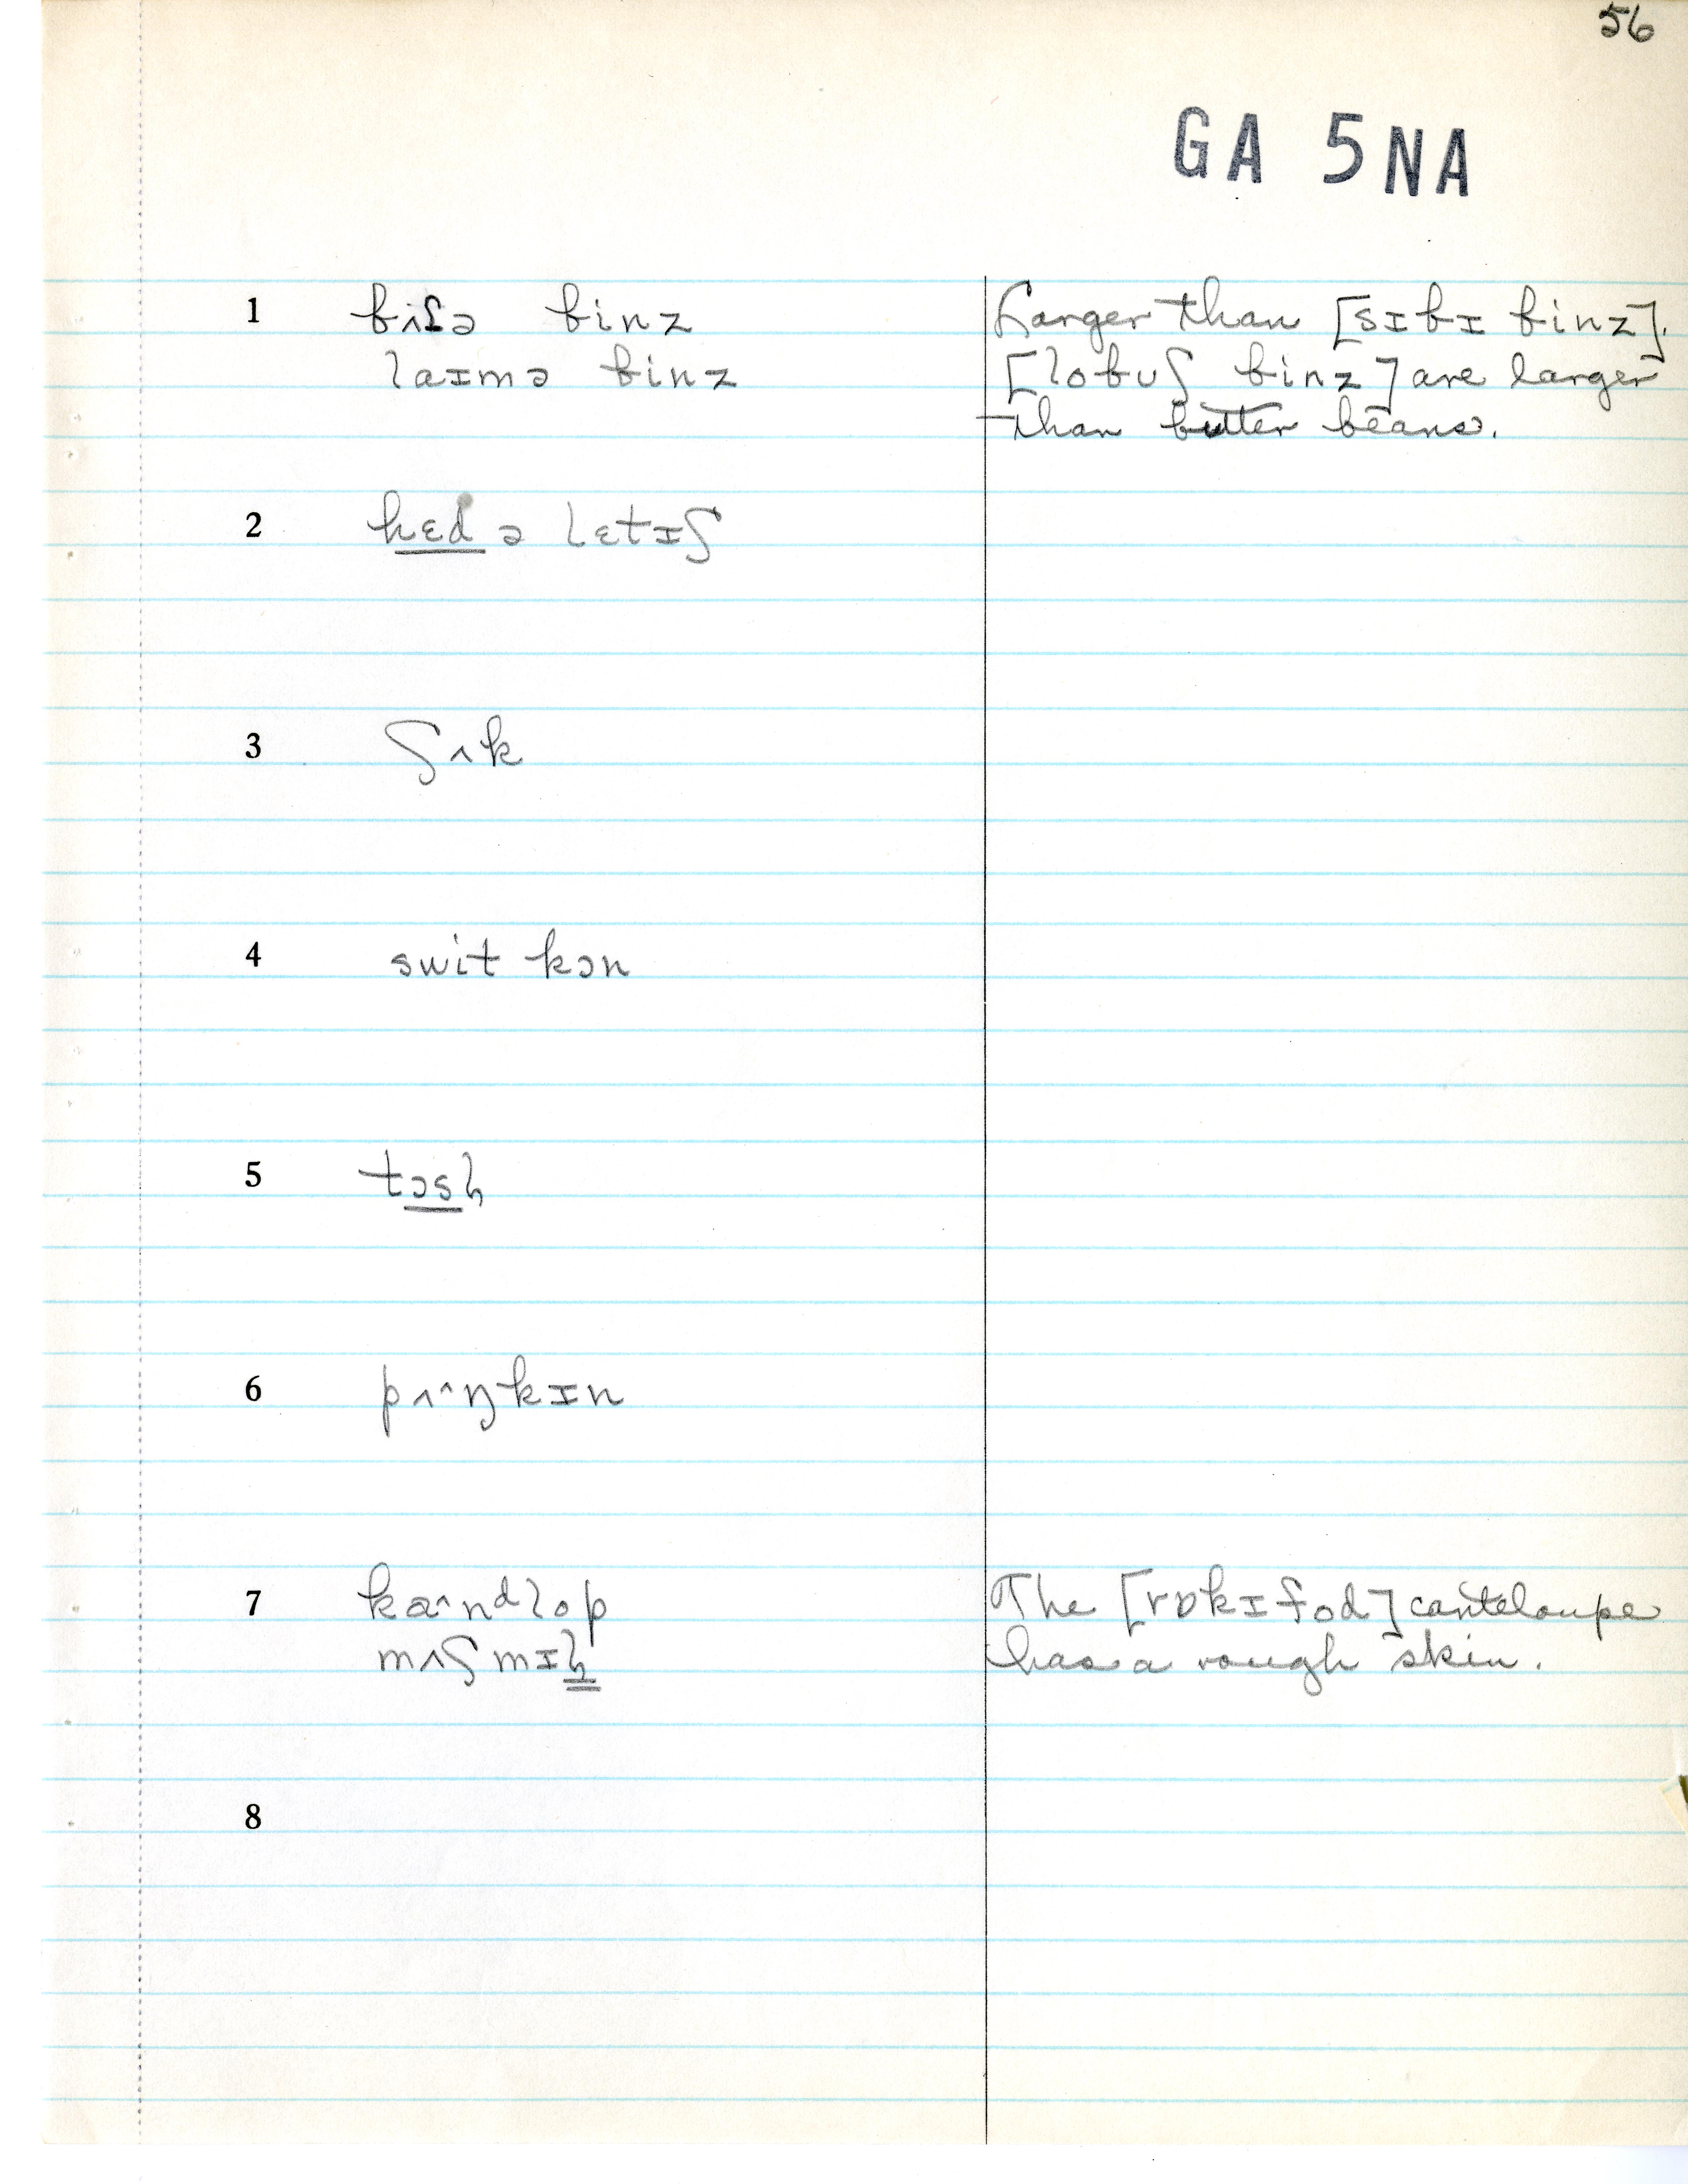 56
GA 5NA
1 bʌſə binz
laɪmə binz
Larger than [sɪbɪ binz].
[lobuʃ binz] are larger
than butter beans.
2 hɛd ə lɛtɪʃ
3 ʃʌk
4 swit kɔn
5 tɔsl̩
6 pʌ^ŋkɪn
7 kaˆndlop
mʌʃmɪl̩
The [rɒkɪfod] canteloupe
has a rough skin.
8